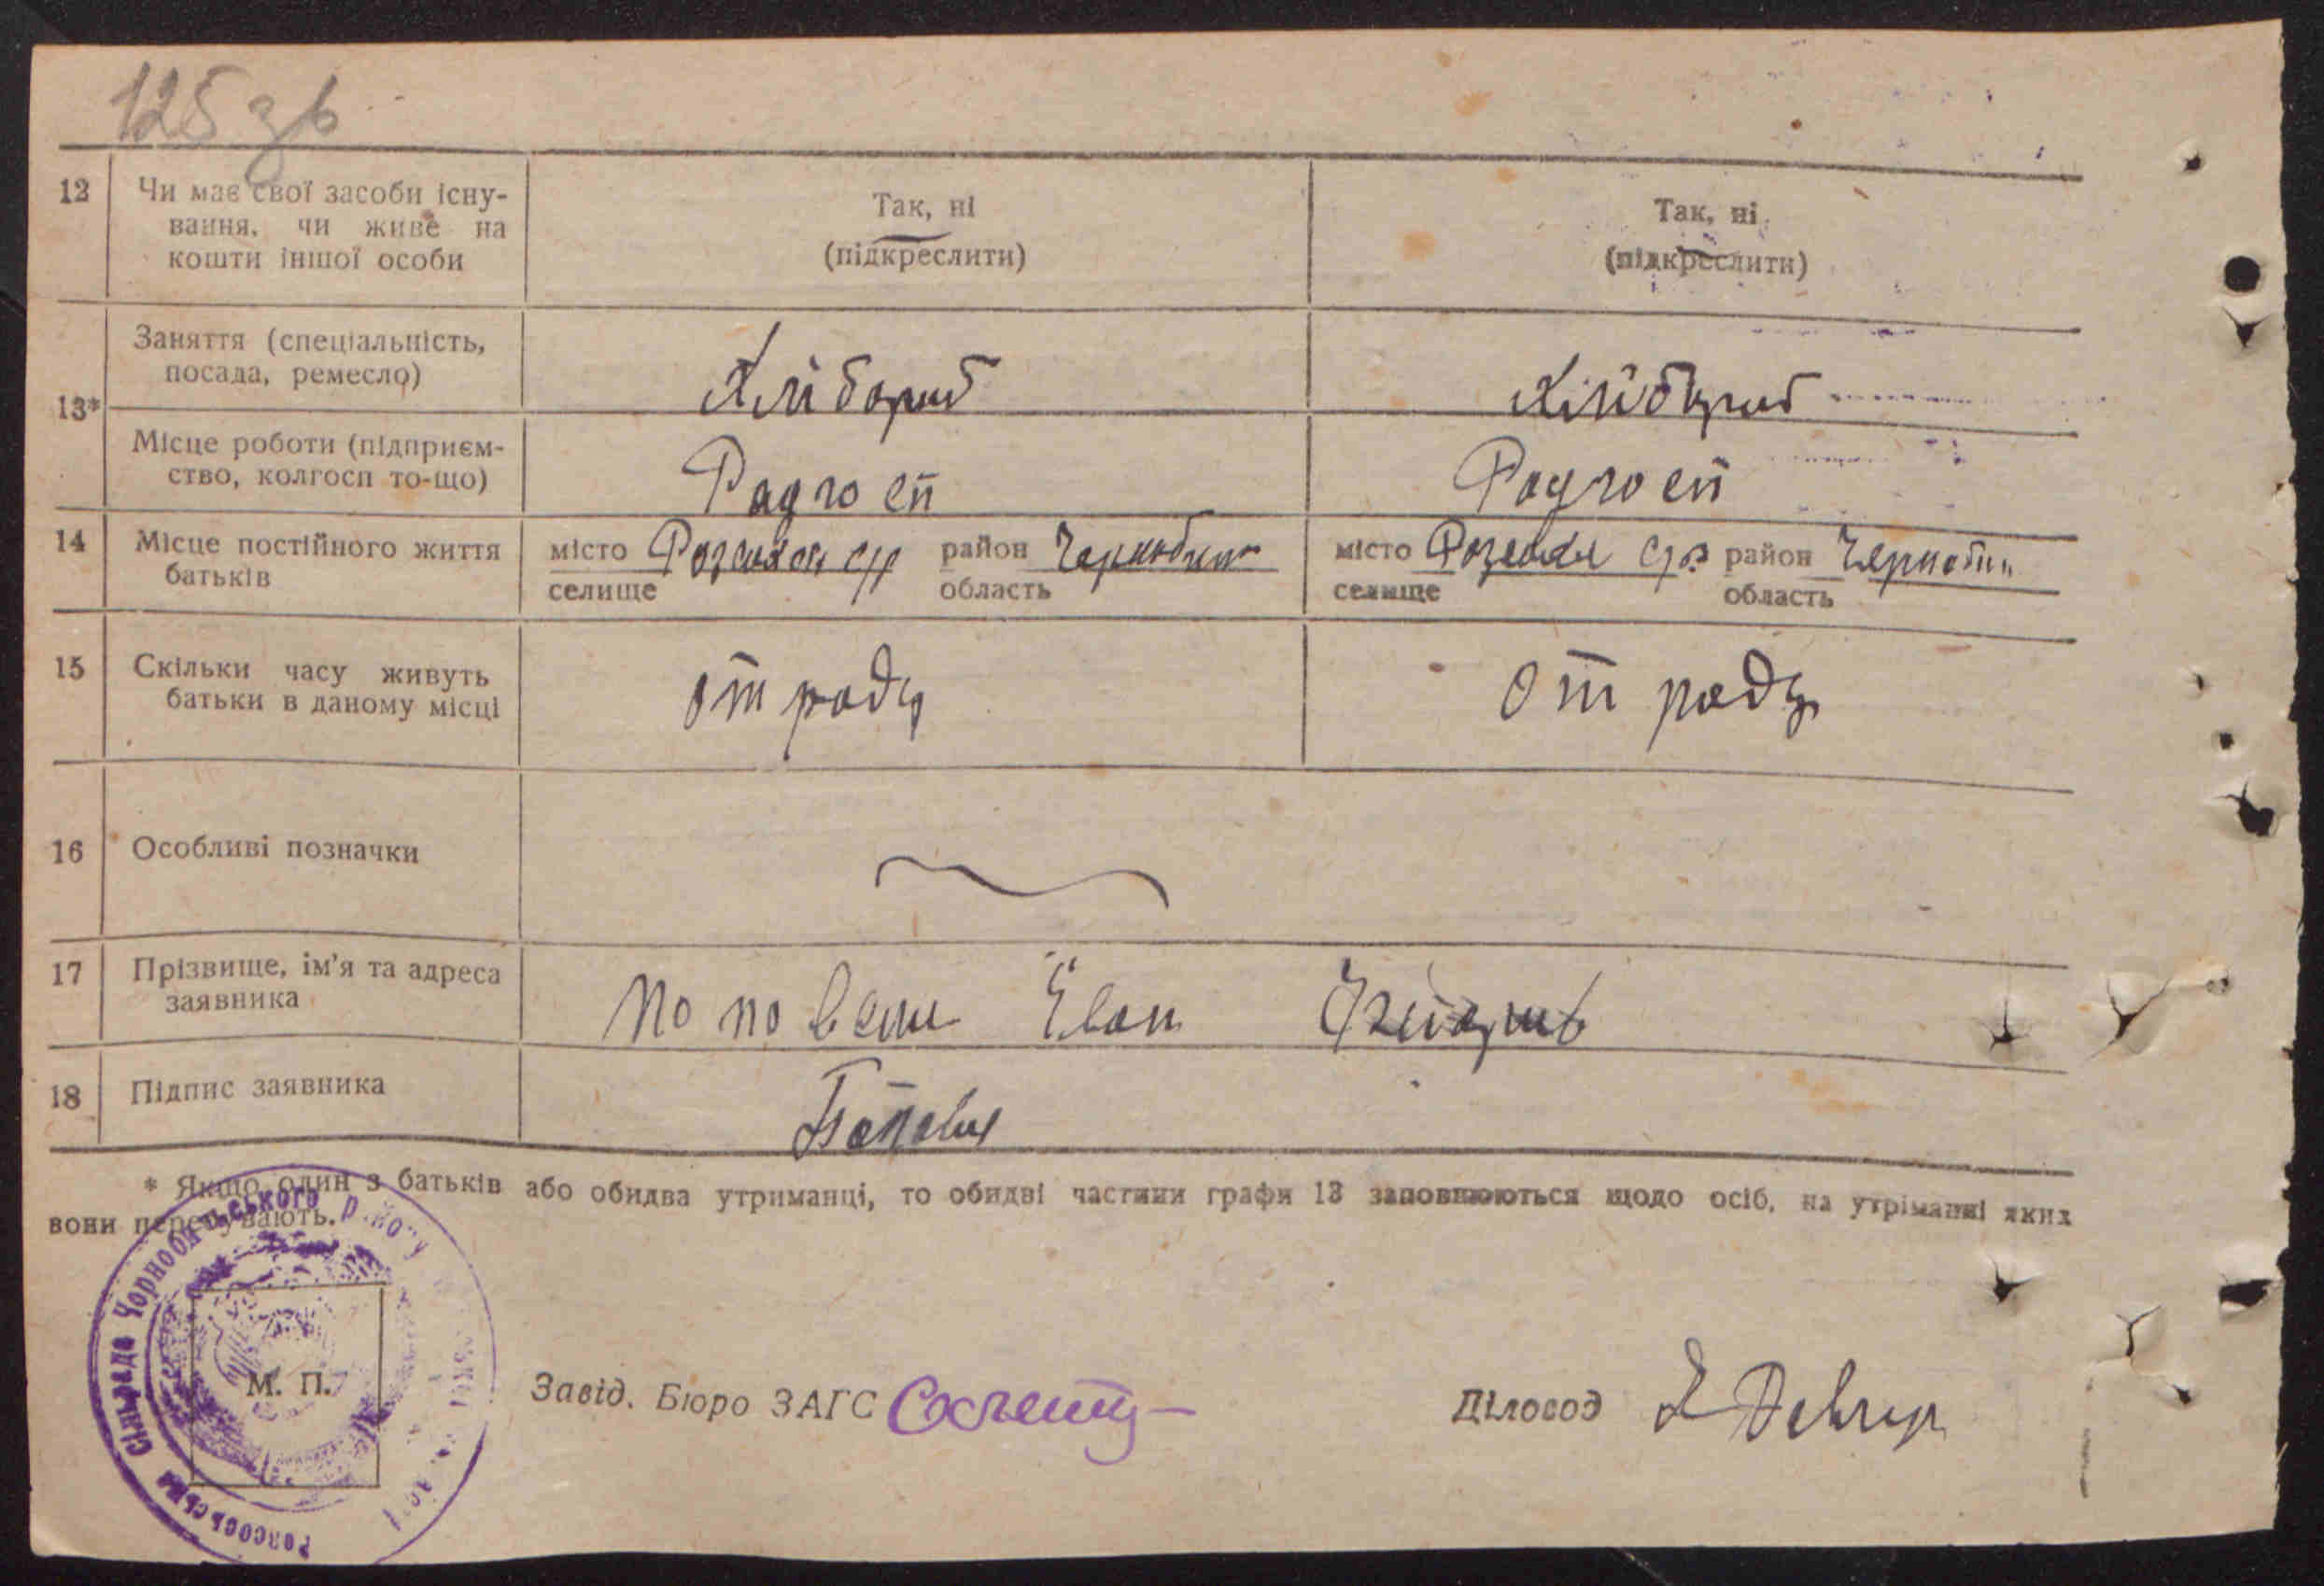 125 зв
12 Чи має свої засоби існу- Так, ні Так, ні
вання, чи живе на (підкреслити) (підкреслити)
кошти іншої особи
13* Заняття (спеціальність,
посада, ремесло) Хлібороб Хлібороб
Місце роботи (підприєм-
ство, колгосп то-що) Радгосп Радгосп
14 Місце постійного життя місто с/р район місто с/р район
батьків селище область селище область
15 Скільки часу живуть от роду от роду
батьки в даному місці
16 Особливі позначки
17 Прізвище, ім'я та адреса
заявника
18 Підпис заявника
* Якщо один з батьків або обидва утриманці, то обидві частини графи 13 заповнюються щодо осіб, на утріманні яких
вони перебувають.
сільрада Чорнобильського р-ну
М. П.
Завід. Бюро ЗАГС
Діловод